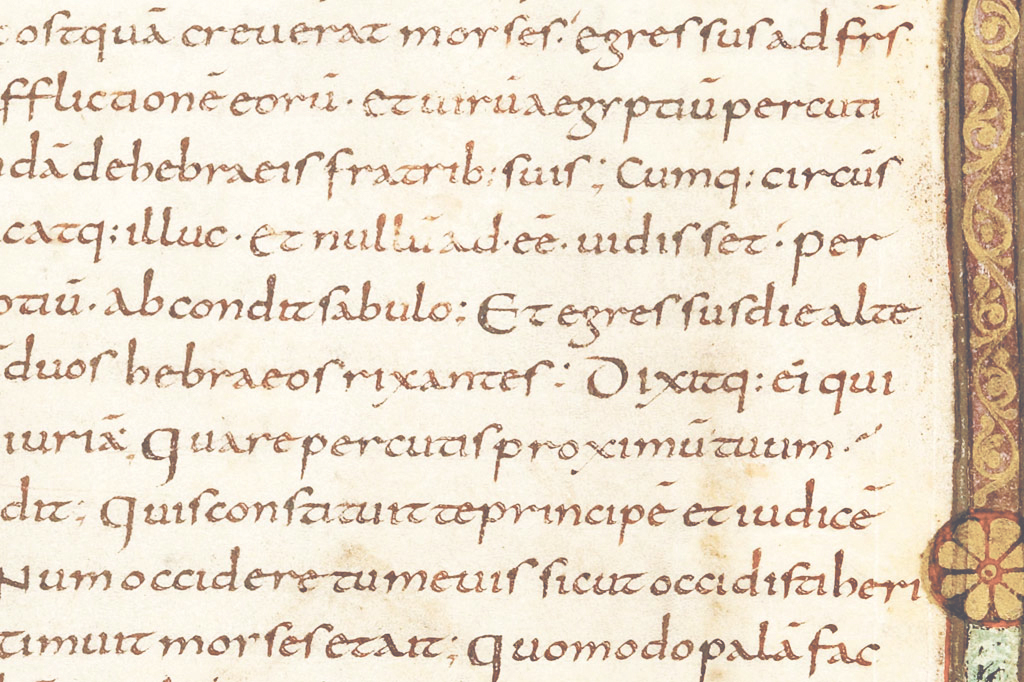 ostquā creuerat morses · egressus ad frs
fflictionē eorū · et uirū aegyptiū percuti
ndā de hebraeis fratrib; suis ; Cumq; circūs
catq; illuc · Et nullū ad · eē · uidisset · per
ptiū · Abcondit sabulo ; Et egressus die alte
duos hebraeos rixantes ; Dixitq; ei qui
iuriā ; Quare percutis proximū tuum ·
dit ; Quis constituit te principē et iudicē
Num occidere tu me uis sicut occidisti heri
timuit morses et ait ; Quomodo palā fac